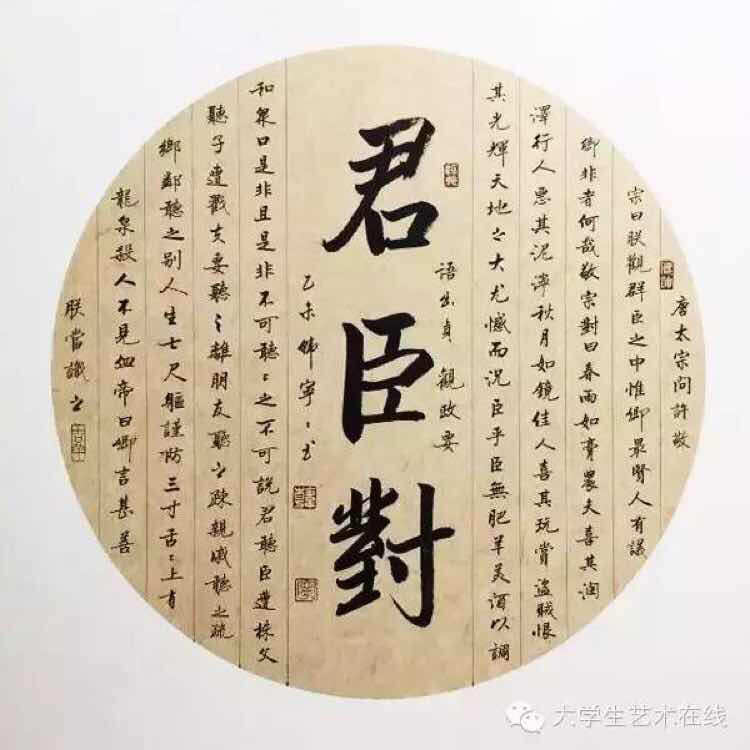 唐太宗問許敬
宗曰朕觀群臣之中惟卿最賢人有議
卿非者何哉敬宗對曰春雨如膏農夫喜其潤
澤行人惡其泥濘秋月如鏡佳人喜其玩賞盜賊恨
其光輝天地之大尤憾而況臣乎臣無肥羊美酒以調
語出貞觀政要
君臣對
乙未韓寧〻書
和眾口是非且是非不可聽〻之不可說君聽臣遭誅父
聽子遭戮夫妻聽之離朋友聽之疎親戚聽之疏
鄉鄰聽之別人生七尺軀謹防三寸舌〻上有
龍泉殺人不見血帝曰卿言甚善
朕當識之
大学生艺术在线